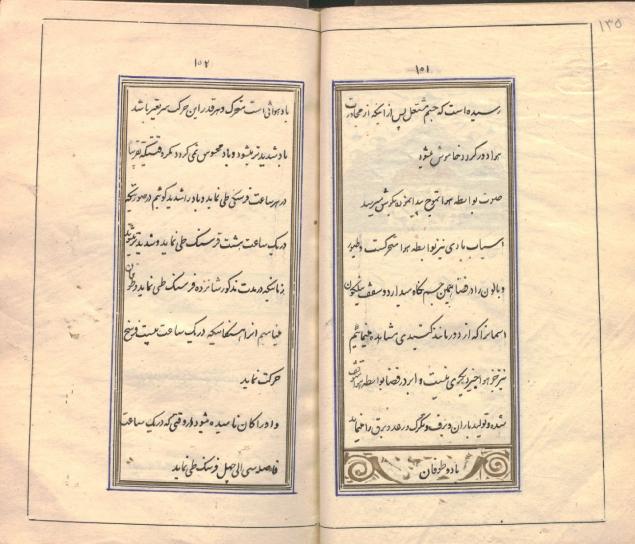 ۱۳۵
۱۵۱
رسیده است که جسم مشتعل پس از آنکه از مجاورت
هوا دور گردد خاموش میشود
صوت بواسطه هوا تموج پیدا نموده بگوش میرسد
اسباب بادی نیز بواسطه هوا متحرک است و طیور
و بالون را در فضا همین جسم نگاه میدارد و سقف نیلگون
آسمانرا که از دور مانند گنبدی مشاهده مینمائیم
نیز جز هوا چیز دیگری نیست و ابر در فضا بواسطه هوا
شده و تولید باران و برف و تگرک و رعد و برق را مینماید
باد و طوفان
۱۵۲
باد هوائی است متحرک و هر قدر این حرکت سریعتر باشد
باد شدیدتر میشود و باد محسوس نمی گردد مگر وقتیکه تقریبا
در هر ساعت فرسنگی طی نماید و باد را شدید گوئیم در صورتیکه
در یک ساعت هشت فرسنگ طی نماید و شدیدتر
زمانیکه در مدت مذکور شانزده فرسنگ طی نماید و طوفان
مینامیم آنرا هنگامیکه در یک ساعت بیست فرسخ
حرکت نماید
و اوراکان نامیده شود در وقتی که در یک ساعت
فاصله سی الی چهل فرسنگ طی نماید